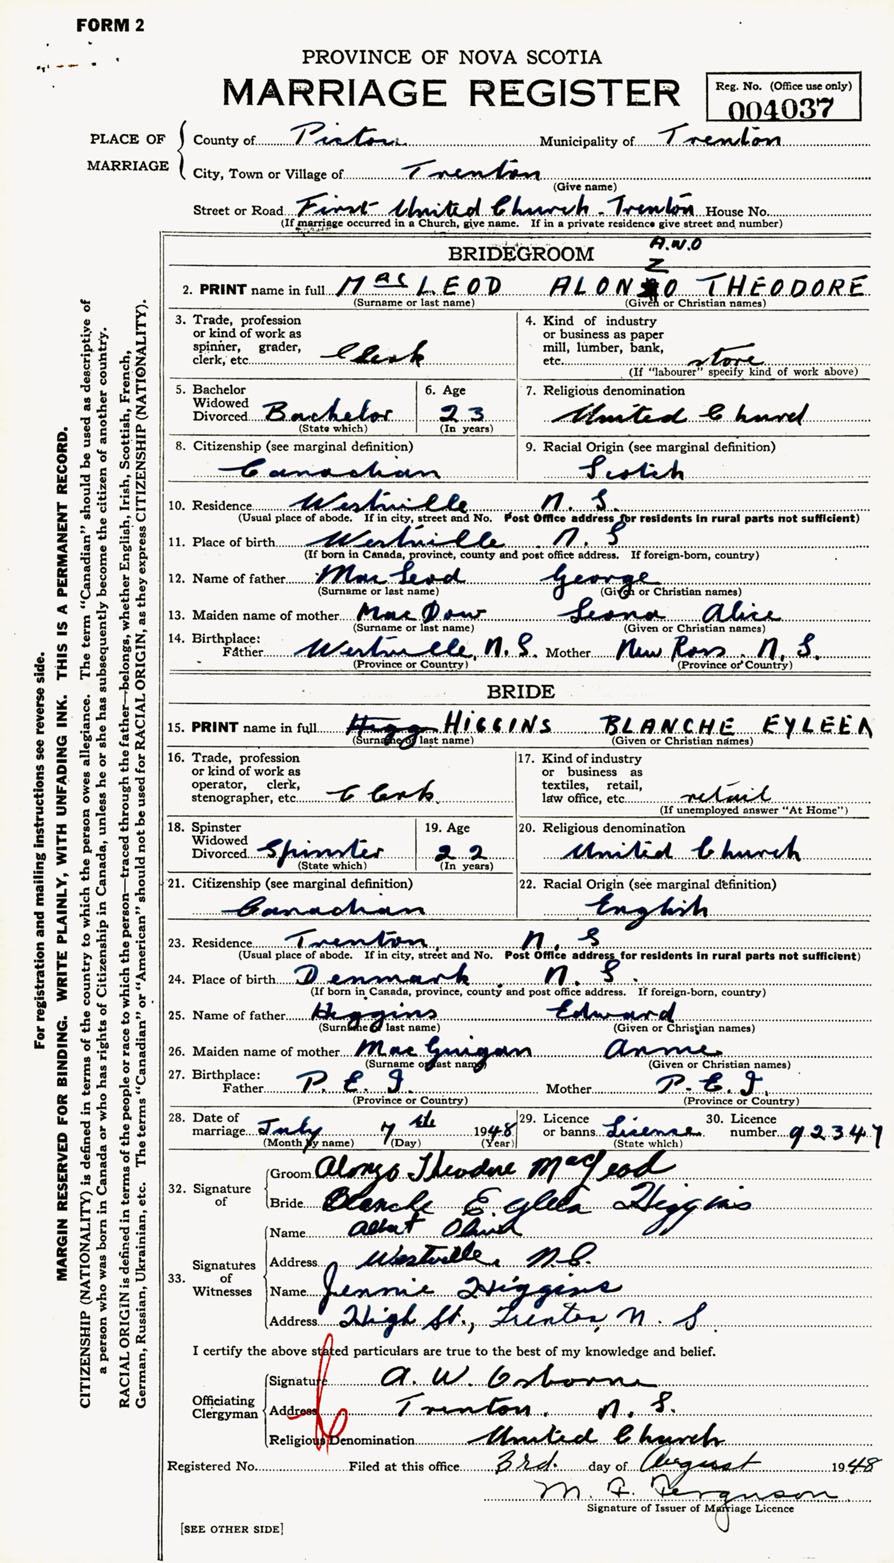 FORM 2
PROVINCE OF NOVA SCOTIA
MARRIAGE REGISTER
Reg. No. (Office use only)
004037
PLACE OF MARRIAGE
County of Pictou Municipality of Trenton
City, Town or Village of Trenton
(Give name)
Street or Road First United Church - Trenton House No.
(If marriage occurred in a Church, give name. If in a private residence give street and number)
BRIDEGROOM
A.W.O
Z
2. PRINT name in full MacLEOD ALONZO THEODORE
(Surname or last name) (Given or Christian names)
3. Trade, profession or kind of work as spinner, grader, clerk, etc. Clerk
4. Kind of industry or business as paper mill, lumber, bank, etc. store
(If "labourer" specify kind of work above)
5. Bachelor Widowed Divorced Bachelor
(State which)
6. Age 23
(In years)
7. Religious denomination
United Church
8. Citizenship (see marginal definition)
Canadian
9. Racial Origin (see marginal definition)
Scotch
10. Residence Westville N. S.
(Usual place of abode. If in city, street and No. Post Office address for residents in rural parts not sufficient)
11. Place of birth Westville N. S
(If born in Canada, province, county and post office address. If foreign-born, country)
12. Name of father MacLeod George
(Surname or last name) (Given or Christian names)
13. Maiden name of mother MacDow Leona Alice
(Surname or last name) (Given or Christian names)
14. Birthplace:
Father Westville, N. S. Mother New Ross N. S.
(Province or Country) (Province or Country)
BRIDE
15. PRINT name in full Higg HIGGINS BLANCHE EYLEEN
(Surname or last name) (Given or Christian names)
16. Trade, profession or kind of work as operator, clerk, stenographer, etc. Clerk
17. Kind of industry or business as textiles, retail, law office, etc. retail
(If unemployed answer "At Home")
18. Spinster Widowed Divorced Spinster
(State which)
19. Age 22
(In years)
20. Religious denomination
United Church
21. Citizenship (see marginal definition)
Canadian
22. Racial Origin (see marginal definition)
English
23. Residence Trenton, N. S
(Usual place of abode. If in city, street and No. Post Office address for residents in rural parts not sufficient)
24. Place of birth Denmark N. S.
(If born in Canada, province, county and post office address. If foreign-born, country)
25. Name of father Higgins Edward
(Surname or last name) (Given or Christian names)
26. Maiden name of mother MacGuigan Annie
(Surname or last name) (Given or Christian names)
27. Birthplace:
Father P. E. I Mother P. E. I.
(Province or Country) (Province or Country)
28. Date of marriage July 7th 1948
(Month by name) (Day) (Year)
29. Licence or banns License
(State which)
30. Licence number 92347
32. Signature of
Groom Alonzo Theodore MacLeod
Bride Blanche Eyleen Higgins
33. Signatures of Witnesses
Name Albert
Address Westville, N.S.
Name Jennie Higgins
Address High St., Trenton, N. S.
I certify the above stated particulars are true to the best of my knowledge and belief.
Officiating Clergyman
Signature A. W. Osborne
Address Trenton. N. S.
Religious Denomination United Church
Registered No. Filed at this office 3rd. day of August 1948
M. F. Ferguson
Signature of Issuer of Marriage Licence
[SEE OTHER SIDE]
For registration and mailing instructions see reverse side.
MARGIN RESERVED FOR BINDING. WRITE PLAINLY, WITH UNFADING INK. THIS IS A PERMANENT RECORD.
CITIZENSHIP (NATIONALITY) is defined in terms of the country to which the person owes allegiance. The term "Canadian" should be used as descriptive of
a person who was born in Canada or who has rights of Citizenship in Canada, unless he or she has subsequently become the citizen of another country.
RACIAL ORIGIN is defined in terms of the people or race to which the person—traced through the father—belongs, whether English, Irish, Scottish, French,
German, Russian, Ukrainian, etc. The terms "Canadian" or "American" should not be used for RACIAL ORIGIN, as they express CITIZENSHIP (NATIONALITY).